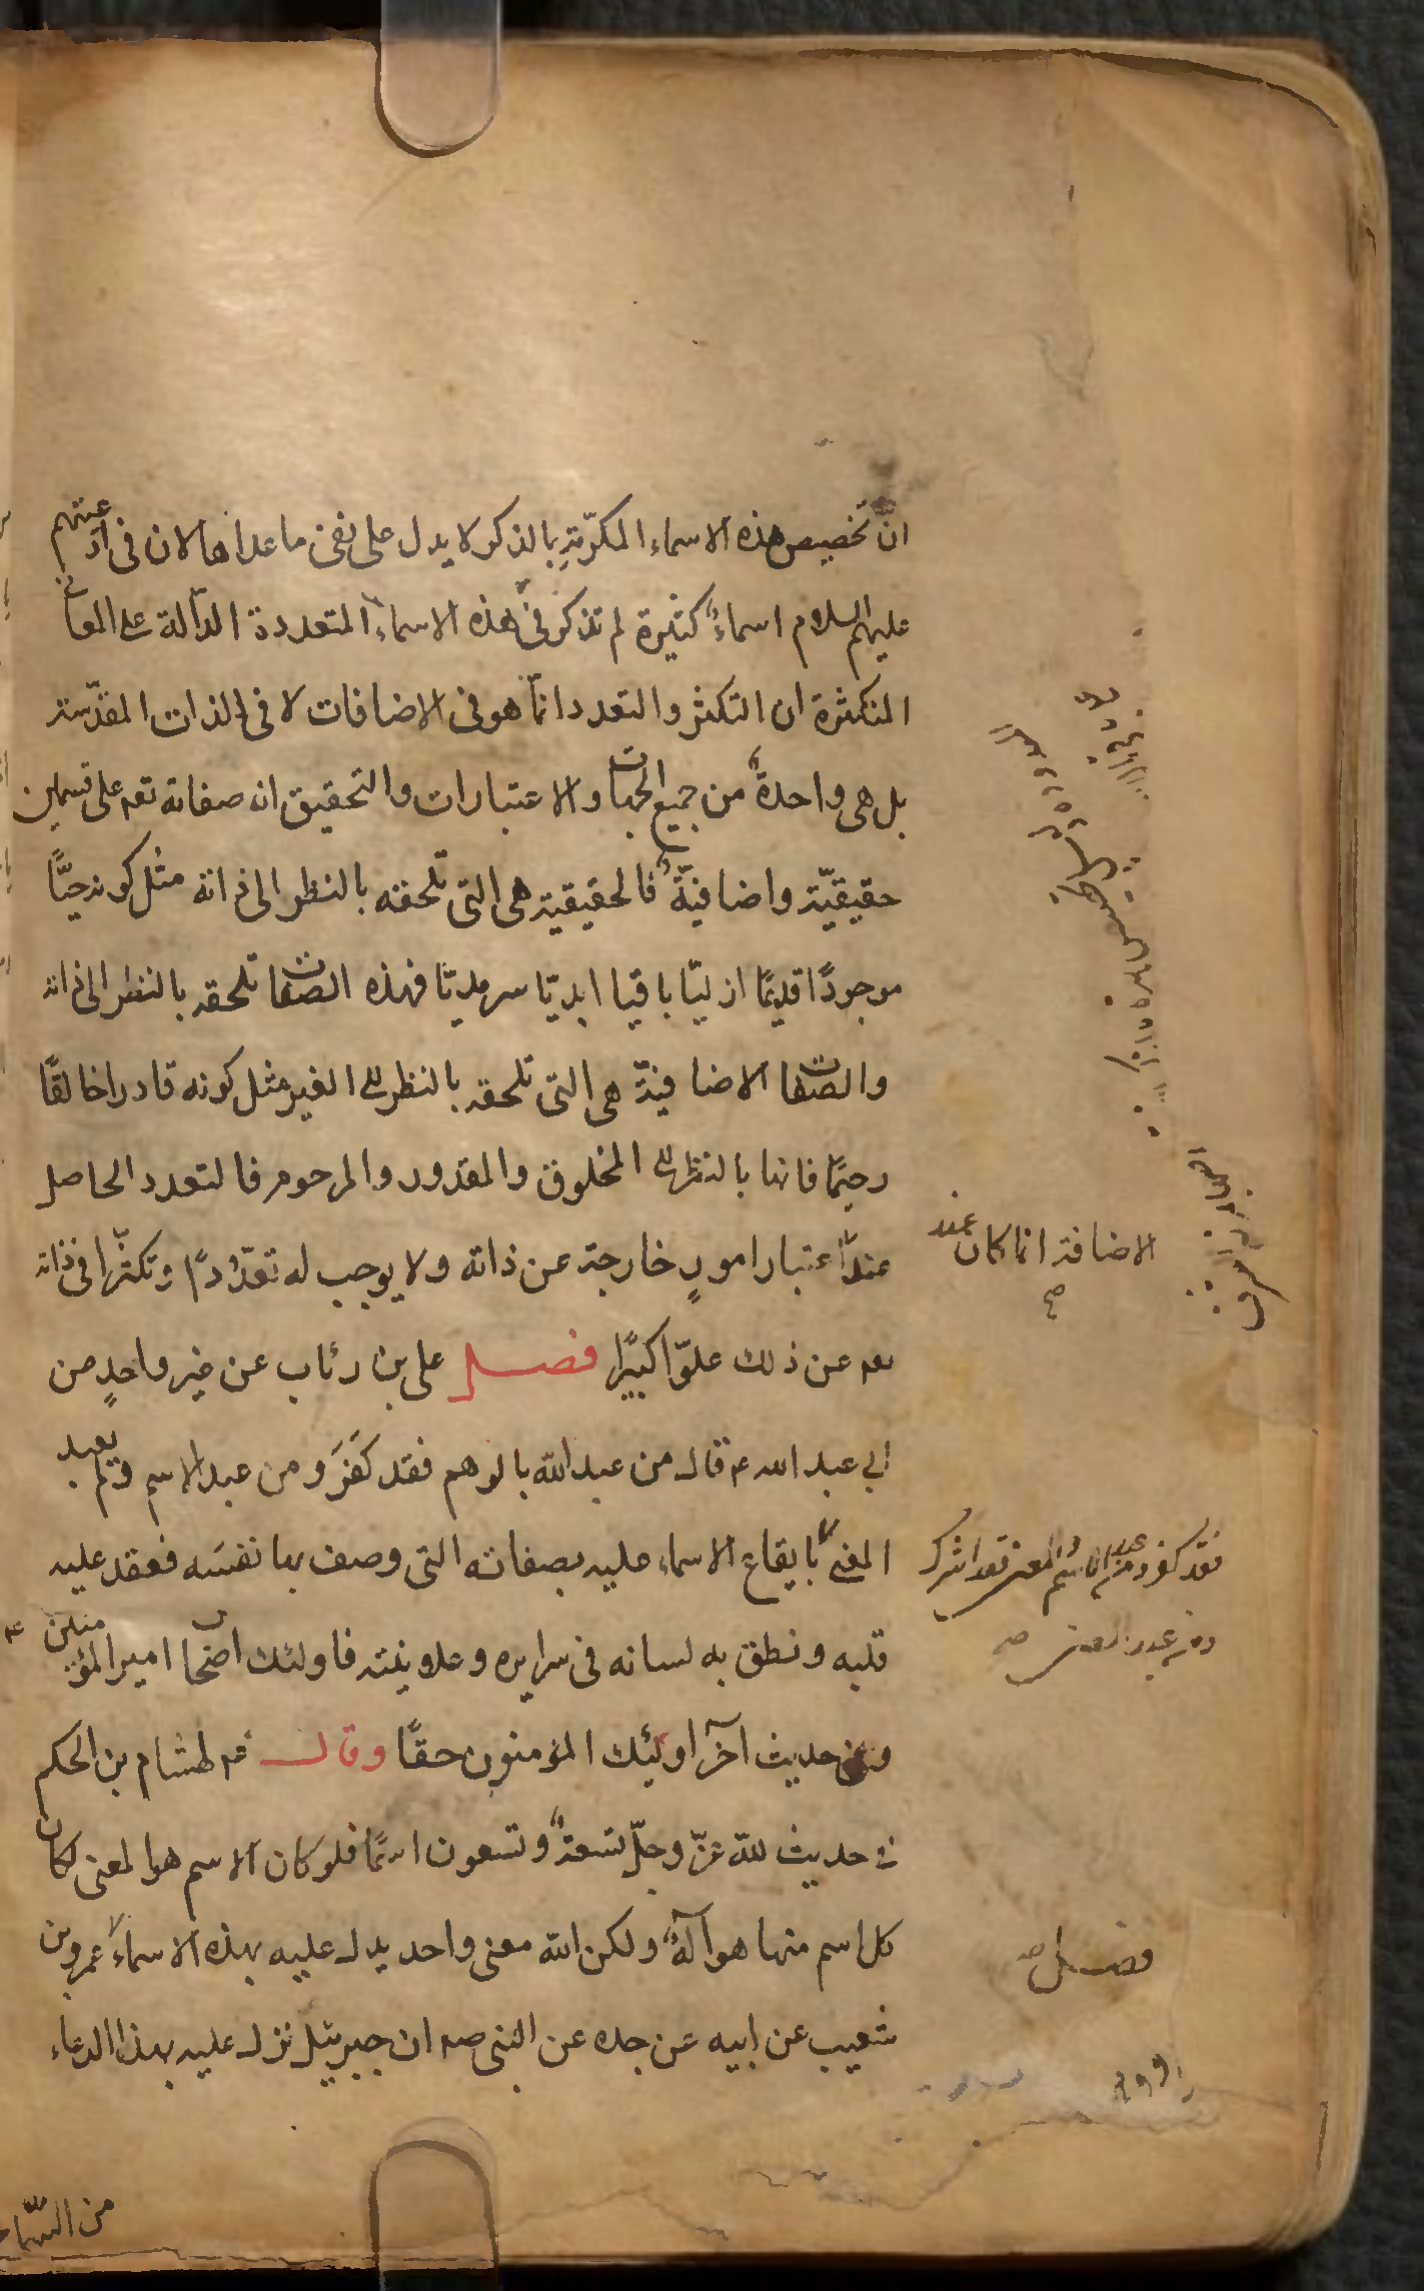 انّ تخصيص هذه الاسماء المكرّمةِ بالذكر لا يدل على نفى ما عداها لان فى ادعيتهم
عليهم السلام اسماءً كثيرة لم تذكر فى هذه الاسماء المتعددة الدّالة على المعانى
المتكثرة ان التكثر والتعدد انمّا هو فى الاضافات لا فى الذات المقدّسة
بل هى واحدةٌ من جميع الجهات والاعتبارات والتحقيق ان صفاته تعه على قسمين
حقيقيّة واضافيّةٌ فالحقيقية هى التى تلحقه بالنظر الى ذاته مثل كونه حيًّا
موجودًا قديمًا ازليّا باقيا ابديّا سرمديّا فهذه الصّفات تلحقه بالنظر الى ذاته
والصّفات الاضافيّة هى التى تلحقه بالنظر الى الغير مثل كونه قادرا خالقًا
رحيمًا فانها بالنظر الى المخلوق والمقدور والمرحوم فالتعدد الحاصل
الاضافة انما كان عند صح
عند اعتبار امورٍ خارجة عن ذاته ولا يوجب له تعدّدًا وتكثّرا فى ذاته
تعه عن ذلك علوّا كبيرًا فصل على بن رئاب عن غير واحدٍ من
ابى عبد الله عه قال من عبد الله بالوهم فقد كَفَرَ ومن عبد الاسم ولم يعبد
فقد كفر ومن عبد الاسم والمعنى فقد اشرك
المعنى بايقاع الاسماء عليه بصفاته التى وصف بها نفسَه فعقد عليه
ومن عبد المعنى صح
قلبه ونطق به لسانه فى سرايره وعلانيته فاولئك اصحاب امير المؤمنين عه
وفى حديث آخر اولئك المؤمنون حقًّا وقال عه لهشام بن الحكم
فى حديث لله عزّ وجلّ تسعةٌ وتسعون اسمًا فلو كان الاسم هو المعنى لكان
كل اسم منها هو آلهٌ ولكن الله معنى واحد يدل عليه بهذه الاسماء عمرو بن
فصل صح
شعيب عن ابيه عن جده عن النبى صه ان جبرئيل نزل عليه بهذا الدعاء
من السّماء